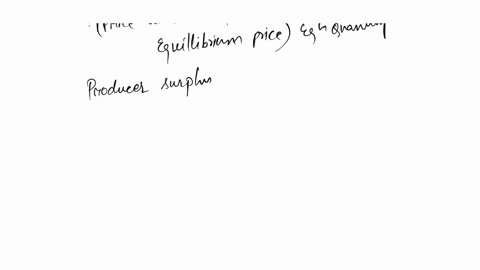 (Price
Equillibrium price) Eqᵘ Quantity
Producer surplus